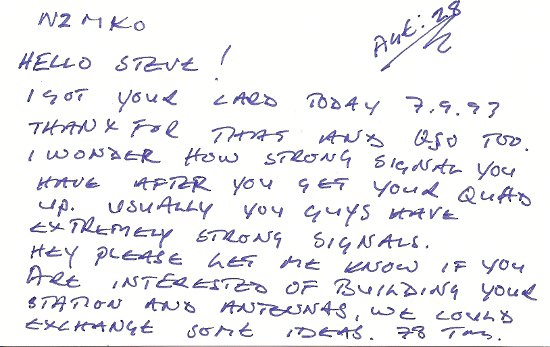 N2MKO
HELLO STEVE!
I GOT YOUR CARD TODAY 7.9.93
THANX FOR THAT AND QSO TOO.
I WONDER HOW STRONG SIGNAL YOU
HAVE AFTER YOU GET YOUR QUAD
UP. USUALLY YOU GUYS HAVE
EXTREMELY STRONG SIGNALS.
HEY PLEASE LET ME KNOW IF YOU
ARE INTERESTED OF BUILDING YOUR
STATION AND ANTENNAS, WE COULD
EXCHANGE SOME IDEAS. 73